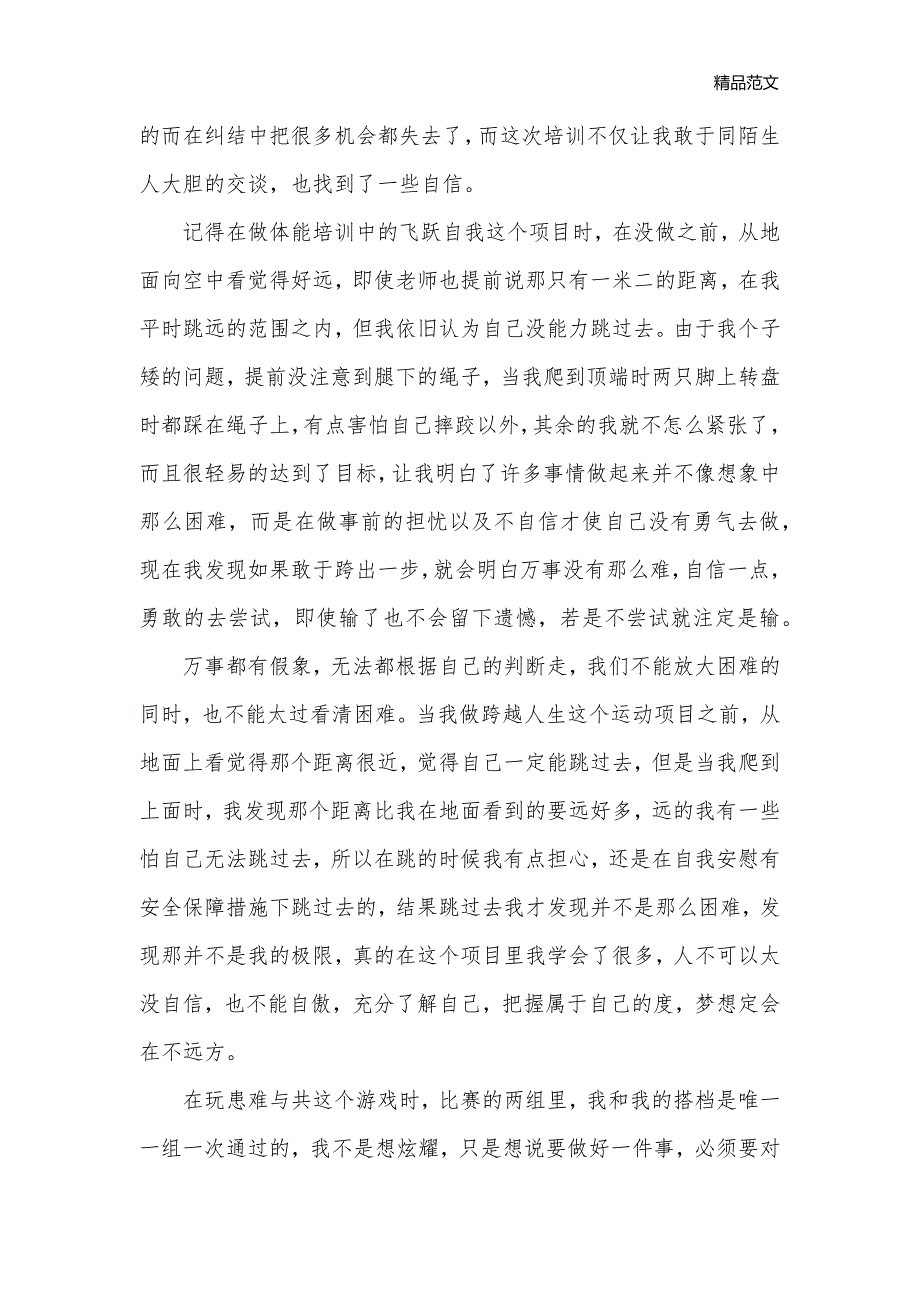 精品范文
的而在纠结中把很多机会都失去了，而这次培训不仅让我敢于同陌生
人大胆的交谈，也找到了一些自信。
记得在做体能培训中的飞跃自我这个项目时，在没做之前，从地
面向空中看觉得好远，即使老师也提前说那只有一米二的距离，在我
平时跳远的范围之内，但我依旧认为自己没能力跳过去。由于我个子
矮的问题，提前没注意到腿下的绳子，当我爬到顶端时两只脚上转盘
时都踩在绳子上，有点害怕自己摔跤以外，其余的我就不怎么紧张了，
而且很轻易的达到了目标，让我明白了许多事情做起来并不像想象中
那么困难，而是在做事前的担忧以及不自信才使自己没有勇气去做，
现在我发现如果敢于跨出一步，就会明白万事没有那么难，自信一点，
勇敢的去尝试，即使输了也不会留下遗憾，若是不尝试就注定是输。
万事都有假象，无法都根据自己的判断走，我们不能放大困难的
同时，也不能太过看清困难。当我做跨越人生这个运动项目之前，从
地面上看觉得那个距离很近，觉得自己一定能跳过去，但是当我爬到
上面时，我发现那个距离比我在地面看到的要远好多，远的我有一些
怕自己无法跳过去，所以在跳的时候我有点担心，还是在自我安慰有
安全保障措施下跳过去的，结果跳过去我才发现并不是那么困难，发
现那并不是我的极限，真的在这个项目里我学会了很多，人不可以太
没自信，也不能自傲，充分了解自己，把握属于自己的度，梦想定会
在不远方。
在玩患难与共这个游戏时，比赛的两组里，我和我的搭档是唯一
一组一次通过的，我不是想炫耀，只是想说要做好一件事，必须要对